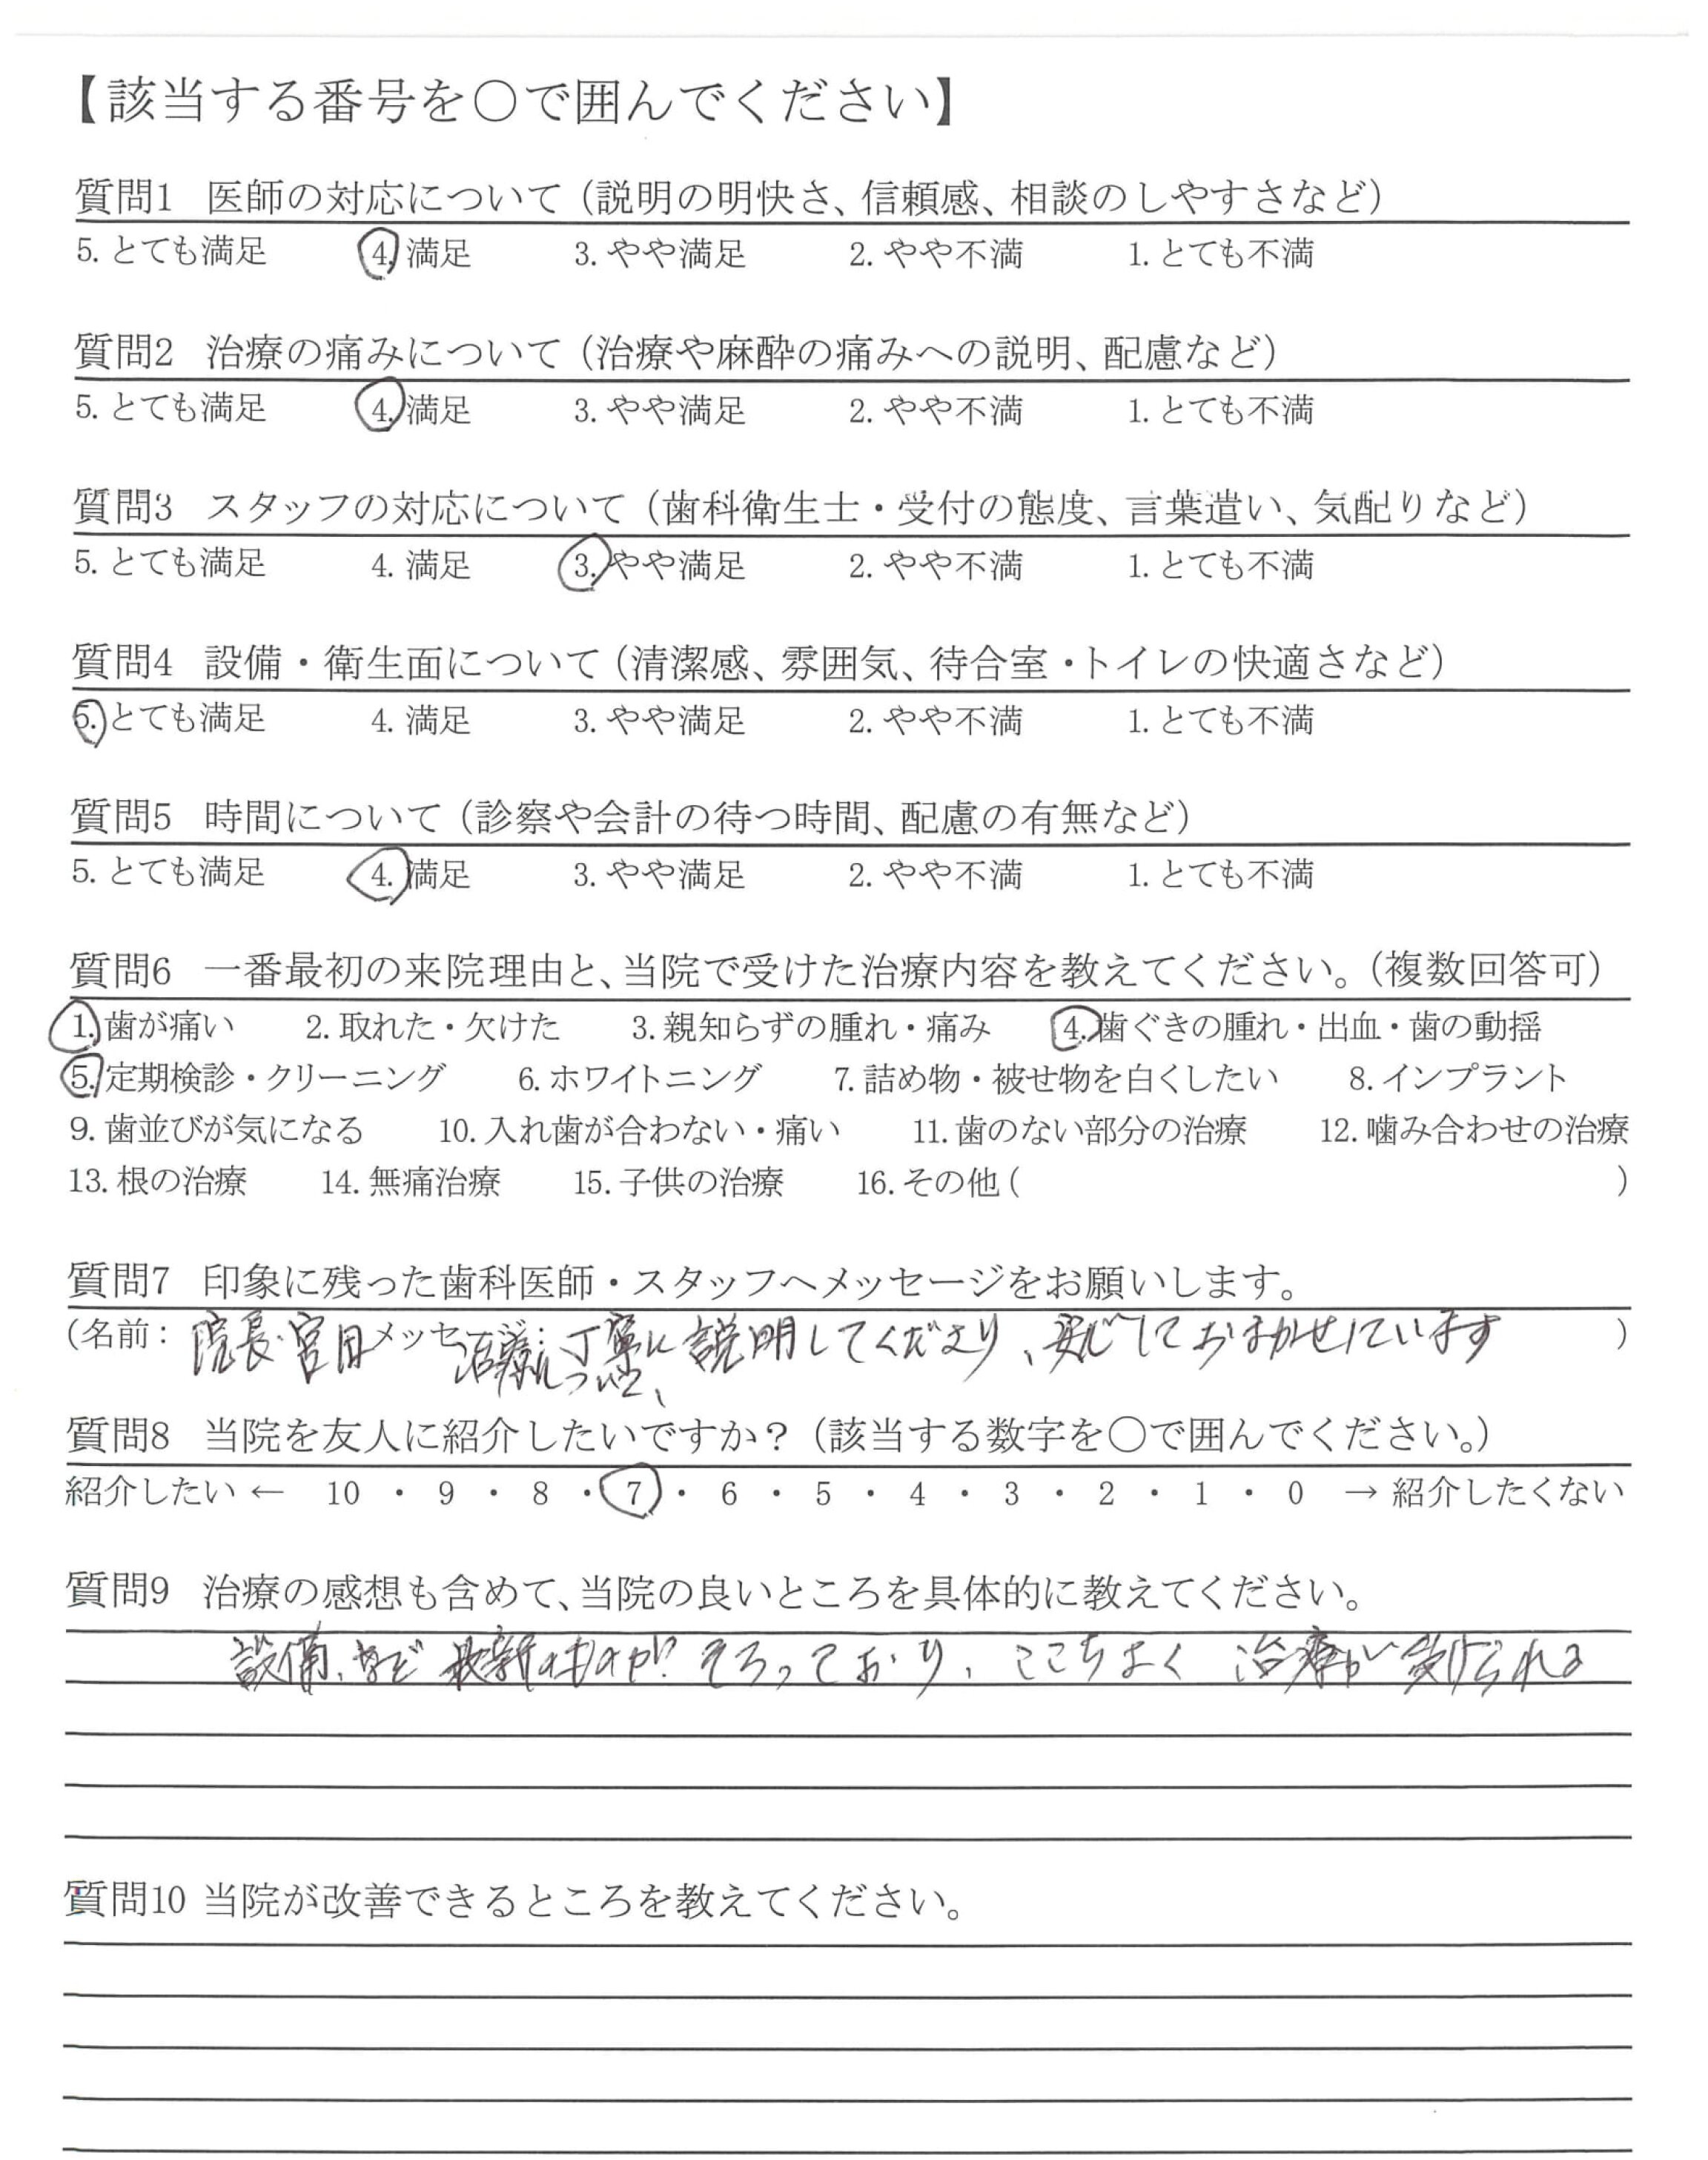 【該当する番号を○で囲んでください】
質問1 医師の対応について（説明の明快さ、信頼感、相談のしやすさなど）
5. とても満足 4. 満足 3. やや満足 2. やや不満 1. とても不満
質問2 治療の痛みについて（治療や麻酔の痛みへの説明、配慮など）
5. とても満足 4. 満足 3. やや満足 2. やや不満 1. とても不満
質問3 スタッフの対応について（歯科衛生士・受付の態度、言葉遣い、気配りなど）
5. とても満足 4. 満足 3. やや満足 2. やや不満 1. とても不満
質問4 設備・衛生面について（清潔感、雰囲気、待合室・トイレの快適さなど）
5. とても満足 4. 満足 3. やや満足 2. やや不満 1. とても不満
質問5 時間について（診察や会計の待つ時間、配慮の有無など）
5. とても満足 4. 満足 3. やや満足 2. やや不満 1. とても不満
質問6 一番最初の来院理由と、当院で受けた治療内容を教えてください。（複数回答可）
1. 歯が痛い 2. 取れた・欠けた 3. 親知らずの腫れ・痛み 4. 歯ぐきの腫れ・出血・歯の動揺
5. 定期検診・クリーニング 6. ホワイトニング 7. 詰め物・被せ物を白くしたい 8. インプラント
9. 歯並びが気になる 10. 入れ歯が合わない・痛い 11. 歯のない部分の治療 12. 噛み合わせの治療
13. 根の治療 14. 無痛治療 15. 子供の治療 16. その他（ ）
質問7 印象に残った歯科医師・スタッフへメッセージをお願いします。
（名前： 院長・宮田 メッセージ： 治療について、丁寧に説明してくださり、安心しておまかせしています ）
質問8 当院を友人に紹介したいですか？（該当する数字を○で囲んでください。）
紹介したい ← 10 ・ 9 ・ 8 ・ 7 ・ 6 ・ 5 ・ 4 ・ 3 ・ 2 ・ 1 ・ 0 → 紹介したくない
質問9 治療の感想も含めて、当院の良いところを具体的に教えてください。
設備、など最新のものがそろっており、ここちよく治療が受けられる
質問10 当院が改善できるところを教えてください。